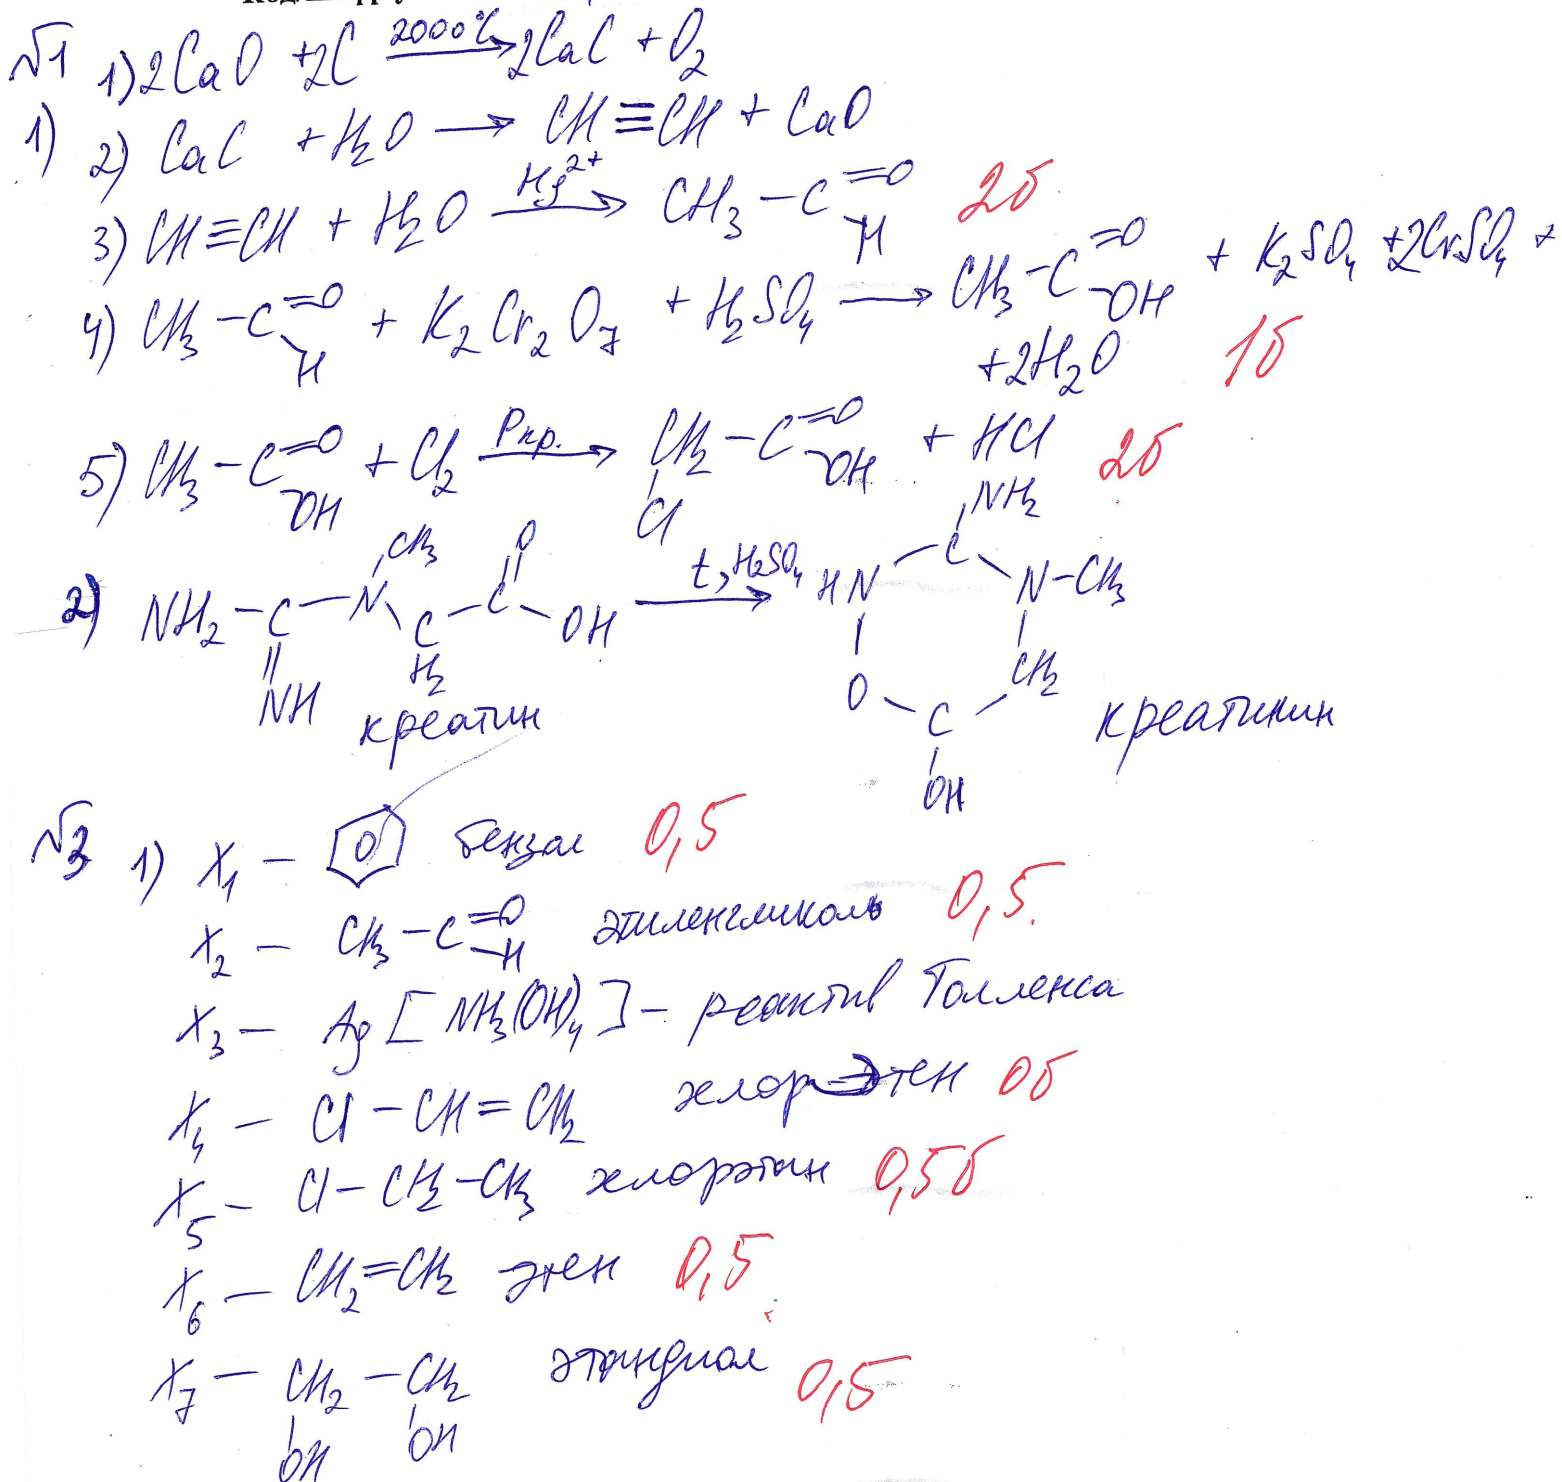 №1 1) 2CaO + 2C 2000°C → 2CaC + O₂
1) 2) CaC + H₂O → CH≡CH + CaO
3) CH≡CH + H₂O Hg²⁺ → CH₃-C=O H 2б
4) CH₃-C=O H + K₂Cr₂O₇ + H₂SO₄ → CH₃-C=O -OH + K₂SO₄ + 2CrSO₄ +
+ 2H₂O 1б
5) CH₃-C=O OH + Cl₂ Pкр. → CH₂-C=O OH + HCl 2б
Cl
2) NH₂-C-N-C-C-OH t, H₂SO₄ → HN-C-N-CH₃
CH₃ O NH₂
NH H₂ O-C-CH₂
креатин креатинин
OH
№3 1) X₁ - бензол 0,5
X₂ - CH₃-C=O -H этиленгликоль 0,5.
X₃ - Ag[NH₃(OH)₄] - реактив Толленса
X₄ - Cl-CH=CH₂ хлорэтен 0б
X₅ - Cl-CH₂-CH₃ хлорэтан 0,5б
X₆ - CH₂=CH₂ этен 0,5
X₇ - CH₂-CH₂ этандиол 0,5
OH OH